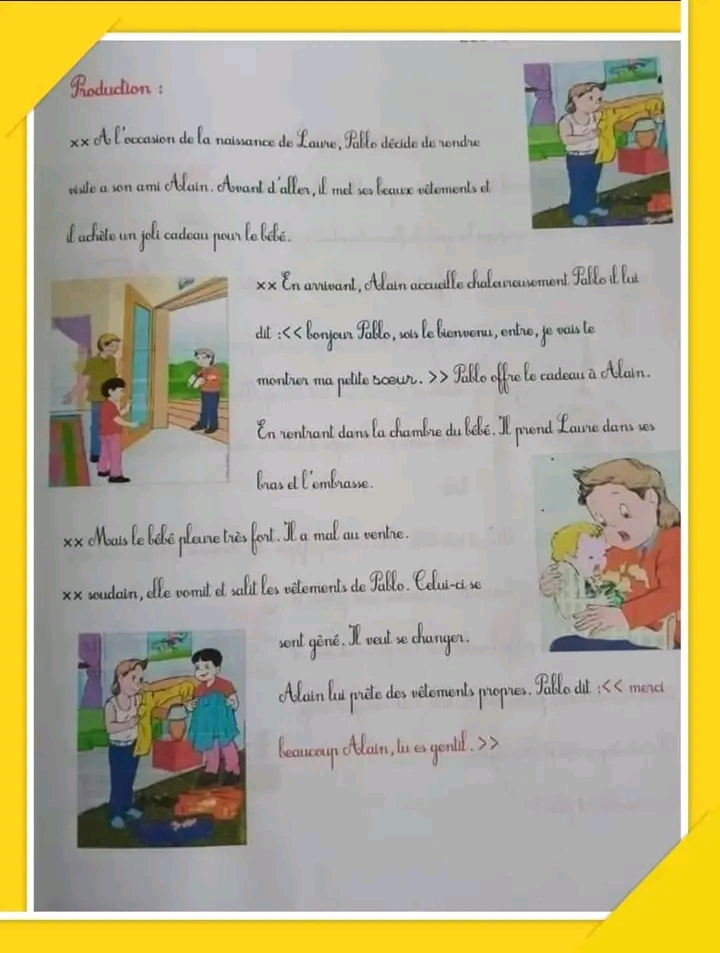 Production :
xx A l'occasion de la naissance de Laure, Pablo décide de rendre
visite a son ami Alain. Avant d'aller, il met ses beaux vêtements et
il achète un joli cadeau pour le bébé.
xx En arrivant, Alain accueille chaleureusement Pablo il lui
dit :<< bonjour Pablo, sois le bienvenu, entre, je vais te
montrer ma petite sœur. >> Pablo offre le cadeau à Alain.
En rentrant dans la chambre du bébé. Il prend Laure dans ses
bras et l'embrasse.
xx Mais le bébé pleure très fort. Il a mal au ventre.
xx soudain, elle vomit et salit les vêtements de Pablo. Celui-ci se
sent gêné. Il veut se changer.
Alain lui prête des vêtements propres. Pablo dit :<< merci
beaucoup Alain, tu es gentil. >>